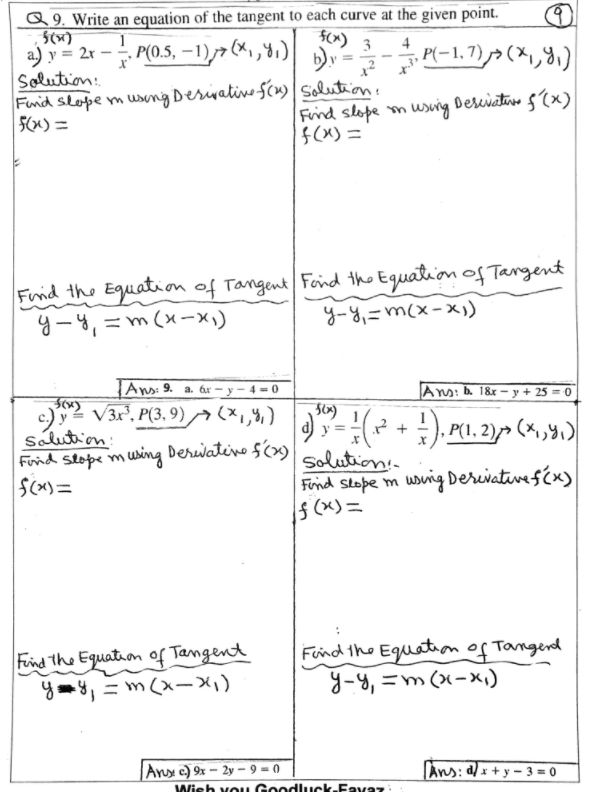 Q 9. Write an equation of the tangent to each curve at the given point. 9
f(x)
a) y = 2x − 1/x, P(0.5, −1) → (x₁, y₁)
Solution:
Find slope m using Derivative f'(x)
f(x) =
Find the Equation of Tangent
y − y₁ = m(x − x₁)
Ans: 9. a. 6x − y − 4 = 0
f(x)
b) y = 3/x² − 4/x³, P(−1, 7) → (x₁, y₁)
Solution:
Find slope m using Derivative f'(x)
f(x) =
Find the Equation of Tangent
y − y₁ = m(x − x₁)
Ans: b. 18x − y + 25 = 0
f(x)
c) y = √3x³, P(3, 9) → (x₁, y₁)
Solution:
Find slope m using Derivative f'(x)
f(x) =
Find the Equation of Tangent
y − y₁ = m(x − x₁)
Ans: c) 9x − 2y − 9 = 0
f(x)
d) y = 1/x(x² + 1/x), P(1, 2) → (x₁, y₁)
Solution:-
Find slope m using Derivative f'(x)
f(x) =
Find the Equation of Tangent
y − y₁ = m(x − x₁)
Ans: d/ x + y − 3 = 0
Wish you Goodluck-Fayaz